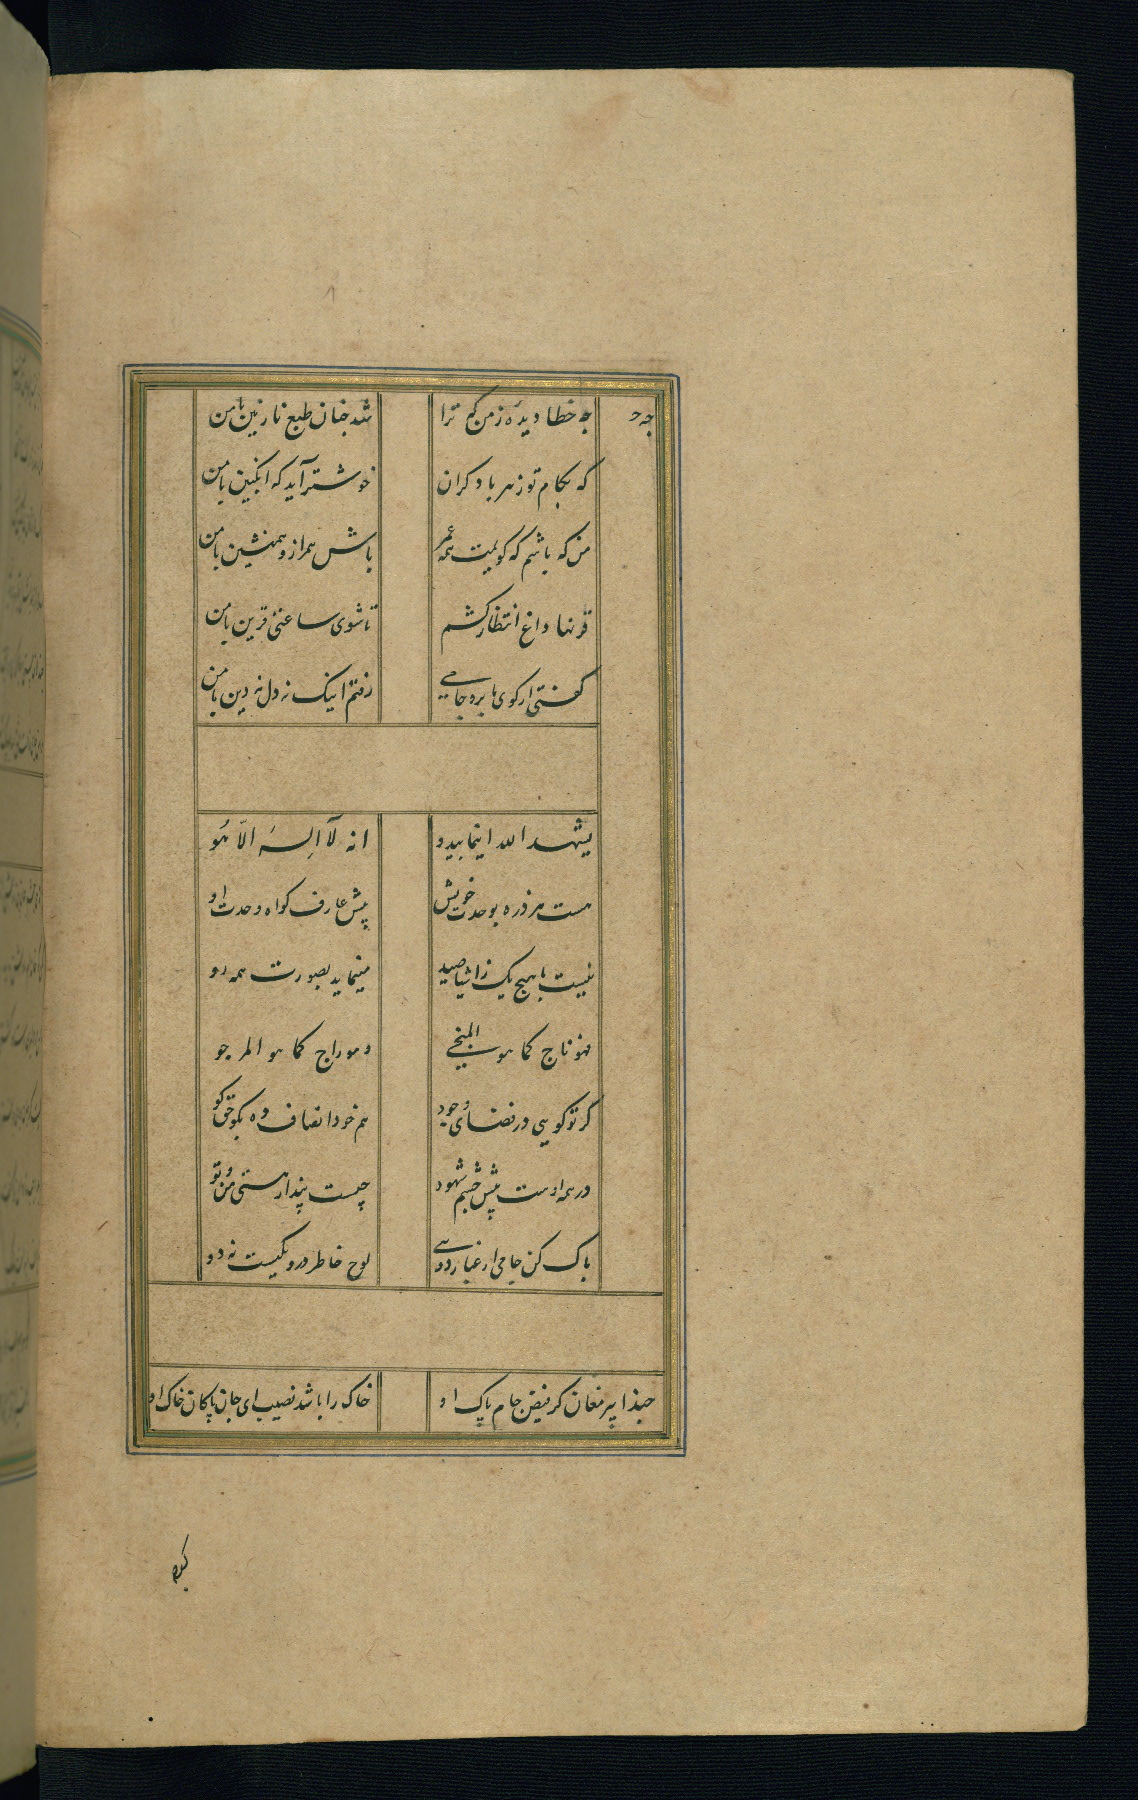 چه خطا دیده ز من که ترا شد چنان طبع نازنین با من
که بکام تو زهر با دکران خوشتر آید که انکبین با من
من که باشم که کویمت همه عمر باش همراز و همنشین با من
قرنها داغ انتظار کشم تا شوی ساعتی قرین با من
کفتی از کوی ما بره جامی رفتم اینک نه دل نه دین با من
یشهد الله اینما یبدو انه لا اله الا هو
هست هر ذره بوحدت خویش پیش عارف کواه وحدت او
نیست با هیچ یک ز اشیا ضد مینماید بصورت همه رو
فهو ناج کما هو المنجی وهو راج کما هو المرجو
کر تو کویی در فضای وجود هم خود انصاف ده بکو حق کو
در همه اوست پیش چشم شهود چیست پندار هستی من و تو
پاک کن جامی از غبار دویی لوح خاطر که یکیست نه دو
حبذا پیر مغان کز فیض جام پاک او خاک را باشد نصیب ای جان پاکان خاک او